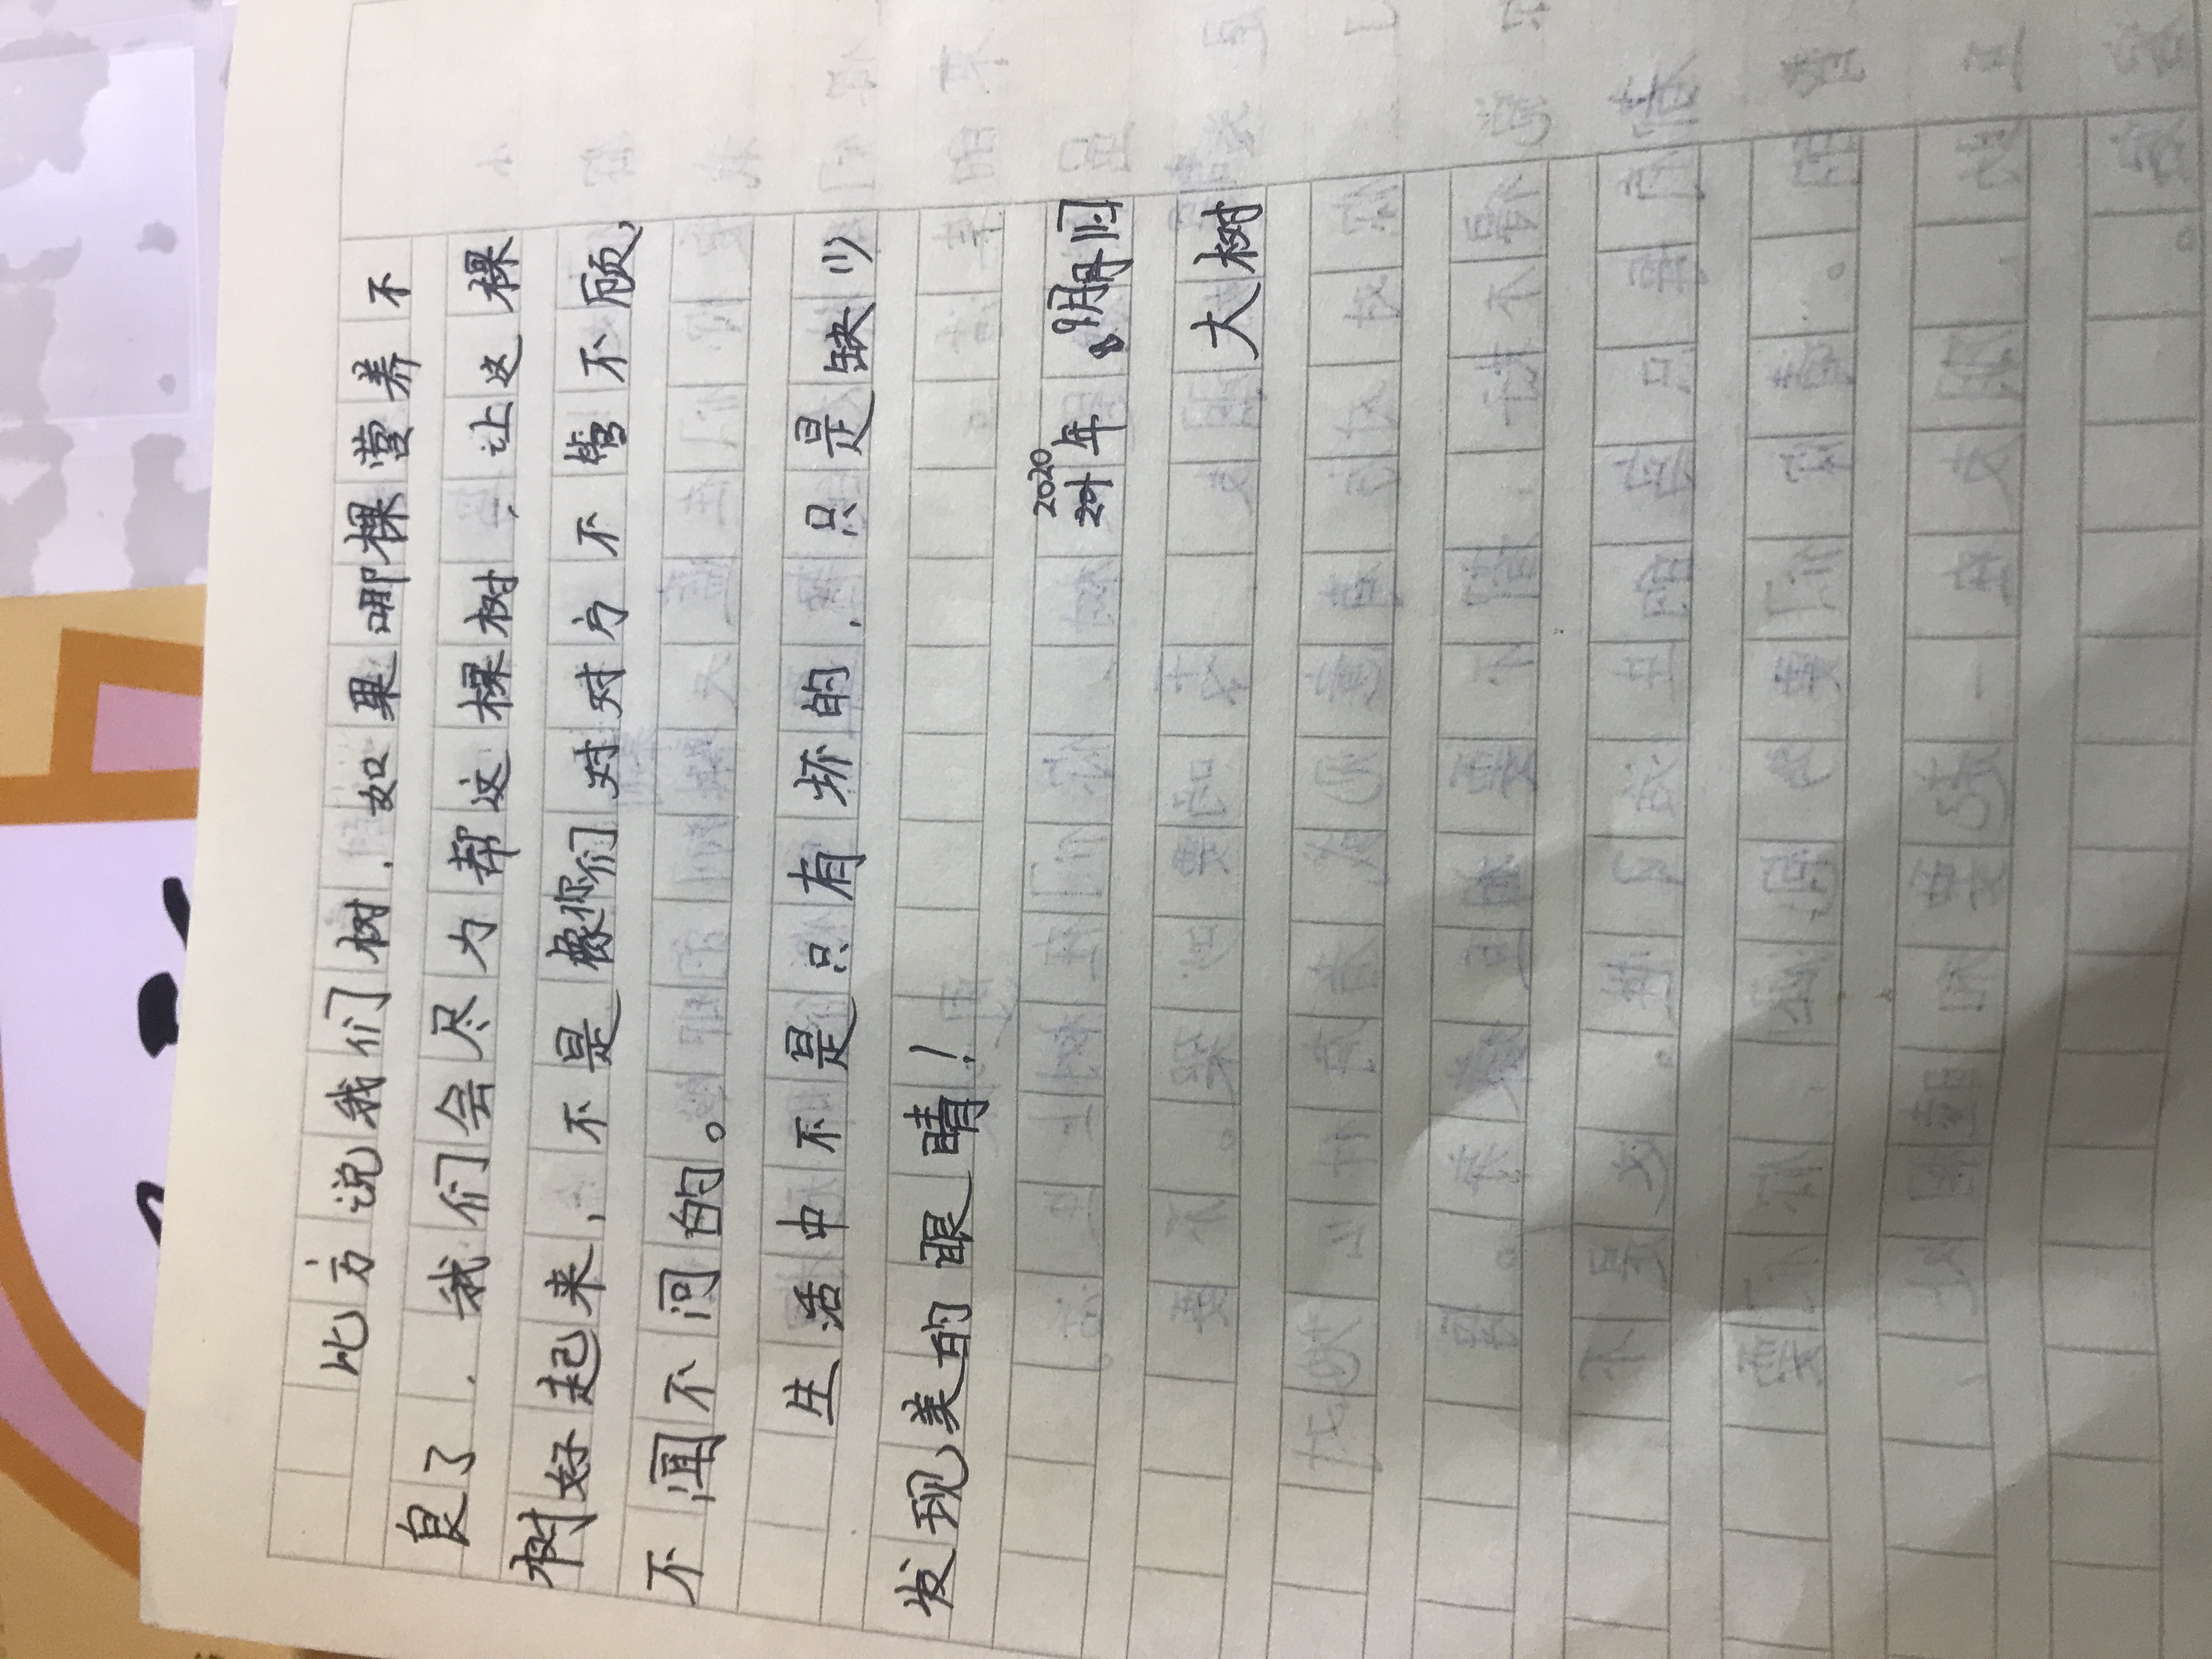 比方说我们树，如果哪棵营养不
良了，我们会尽力帮这棵树，让这棵
树好起来，不是像你们对对方不管不顾，
不闻不问的。
生活中不是只有坏的，只是缺少
发现美的眼睛！
2020年8月
大树